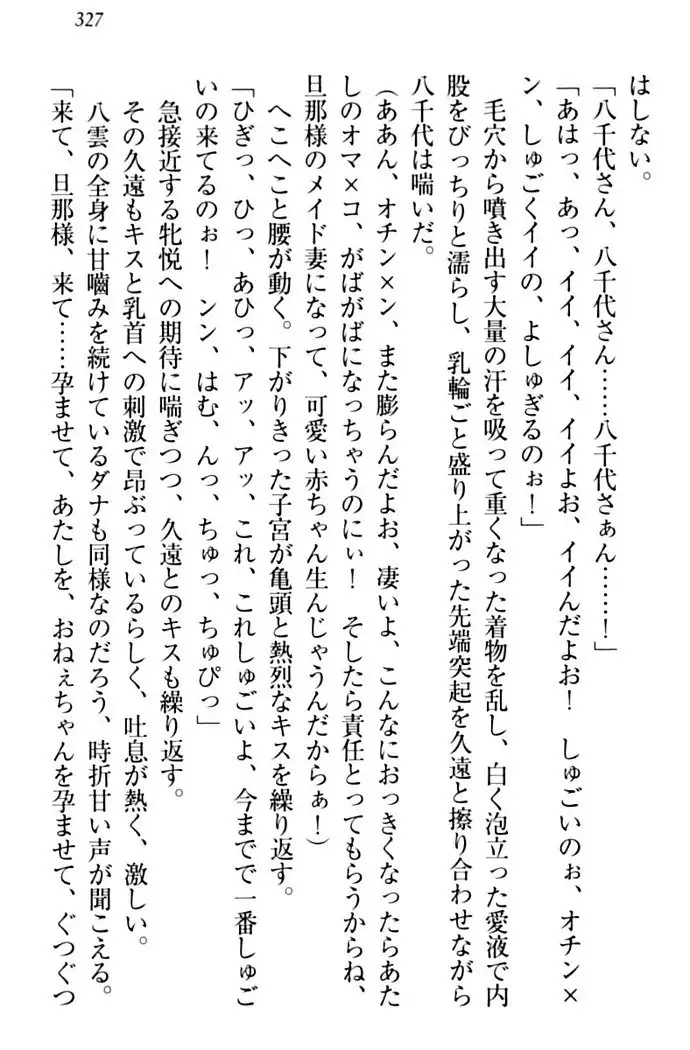 327
はしない。
「八千代さん、八千代さん……八千代さぁん……！」
「あはっ、あっ、イイ、イイ、イイよお、イイんだよお！　しゅごいのぉ、オチン×
ン、しゅごくイイの、よしゅぎるのぉ！」
毛穴から噴き出す大量の汗を吸って重くなった着物を乱し、白く泡立った愛液で内
股をびっちりと濡らし、乳輪ごと盛り上がった先端突起を久遠と擦り合わせながら
八千代は喘いだ。
（ああん、オチン×ン、また膨らんだよお、凄いよ、こんなにおっきくなったらあた
しのオマ×コ、がばがばになっちゃうのにぃ！　そしたら責任とってもらうからね、
旦那様のメイド妻になって、可愛い赤ちゃん生んじゃうんだからぁ！）
へこへこと腰が動く。下がりきった子宮が亀頭と熱烈なキスを繰り返す。
「ひぎっ、ひっ、あひっ、アッ、アッ、これ、これしゅごいよ、今までで一番しゅご
いの来てるのぉ！　ンン、はむ、んっ、ちゅっ、ちゅぴっ」
急接近する牝悦への期待に喘ぎつつ、久遠とのキスも繰り返す。
その久遠もキスと乳首への刺激で昂ぶっているらしく、吐息が熱く、激しい。
八雲の全身に甘嚙みを続けているダナも同様なのだろう、時折甘い声が聞こえる。
「来て、旦那様、来て……孕ませて、あたしを、おねぇちゃんを孕ませて、ぐつぐつ